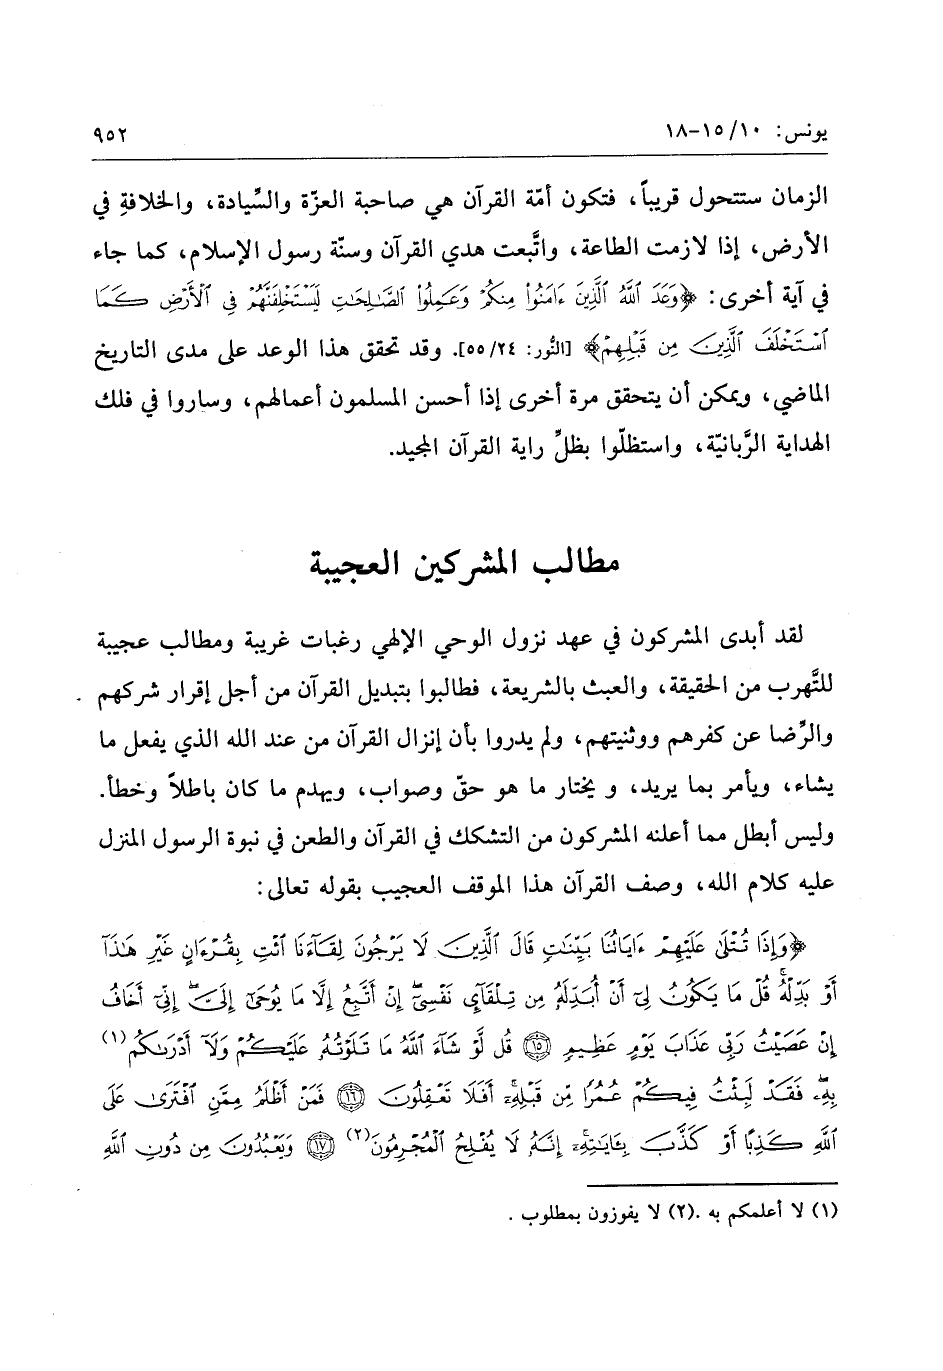 يونس: ١٠/ ١٥-١٨
٩٥٢
الزمان ستتحول قريباً، فتكون أمّة القرآن هي صاحبة العزّة والسِّيادة، والخلافةِ في
الأرض، إذا لازمت الطاعة، واتَّبعت هدي القرآن وسنّة رسول الإسلام، كما جاء
في آية أخرى: ﴿وَعَدَ ٱللَّهُ ٱلَّذِينَ ءَامَنُوا۟ مِنكُمْ وَعَمِلُوا۟ ٱلصَّـٰلِحَـٰتِ لَيَسْتَخْلِفَنَّهُمْ فِى ٱلْأَرْضِ كَمَا
ٱسْتَخْلَفَ ٱلَّذِينَ مِن قَبْلِهِمْ﴾ [النُّور: ٢٤/ ٥٥]. وقد تحقق هذا الوعد على مدى التاريخ
الماضي، ويمكن أن يتحقق مرة أخرى إذا أحسن المسلمون أعمالهم، وساروا في فلك
الهداية الرَّبانيّة، واستظلّوا بظلِّ راية القرآن المجيد.
مطالب المشركين العجيبة
لقد أبدى المشركون في عهد نزول الوحي الإلهي رغبات غريبة ومطالب عجيبة
للتَّهرب من الحقيقة، والعبث بالشريعة، فطالبوا بتبديل القرآن من أجل إقرار شركهم
والرِّضا عن كفرهم ووثنيتهم، ولم يدروا بأن إنزال القرآن من عند الله الذي يفعل ما
يشاء، ويأمر بما يريد، و يختار ما هو حقّ وصواب، ويهدم ما كان باطلاً وخطأ.
وليس أبطل مما أعلنه المشركون من التشكك في القرآن والطعن في نبوة الرسول المنزل
عليه كلام الله، وصف القرآن هذا الموقف العجيب بقوله تعالى:
﴿وَإِذَا تُتْلَىٰ عَلَيْهِمْ ءَايَاتُنَا بَيِّنَـٰتٍ قَالَ ٱلَّذِينَ لَا يَرْجُونَ لِقَآءَنَا ٱئْتِ بِقُرْءَانٍ غَيْرِ هَـٰذَآ
أَوْ بَدِّلْهُ ۚ قُلْ مَا يَكُونُ لِىٓ أَنْ أُبَدِّلَهُۥ مِن تِلْقَآئِ نَفْسِىٓ ۖ إِنْ أَتَّبِعُ إِلَّا مَا يُوحَىٰٓ إِلَىَّ ۖ إِنِّىٓ أَخَافُ
إِنْ عَصَيْتُ رَبِّى عَذَابَ يَوْمٍ عَظِيمٍ ﴿١٥﴾ قُل لَّوْ شَآءَ ٱللَّهُ مَا تَلَوْتُهُۥ عَلَيْكُمْ وَلَآ أَدْرَىٰكُم(١)
بِهِۦ ۖ فَقَدْ لَبِثْتُ فِيكُمْ عُمُرًا مِّن قَبْلِهِۦٓ ۚ أَفَلَا تَعْقِلُونَ ﴿١٦﴾ فَمَنْ أَظْلَمُ مِمَّنِ ٱفْتَرَىٰ عَلَى
ٱللَّهِ كَذِبًا أَوْ كَذَّبَ بِـَٔايَـٰتِهِۦٓ ۚ إِنَّهُۥ لَا يُفْلِحُ ٱلْمُجْرِمُونَ(٢) ﴿١٧﴾ وَيَعْبُدُونَ مِن دُونِ ٱللَّهِ
(١) لا أعلمكم به .(٢) لا يفوزون بمطلوب .